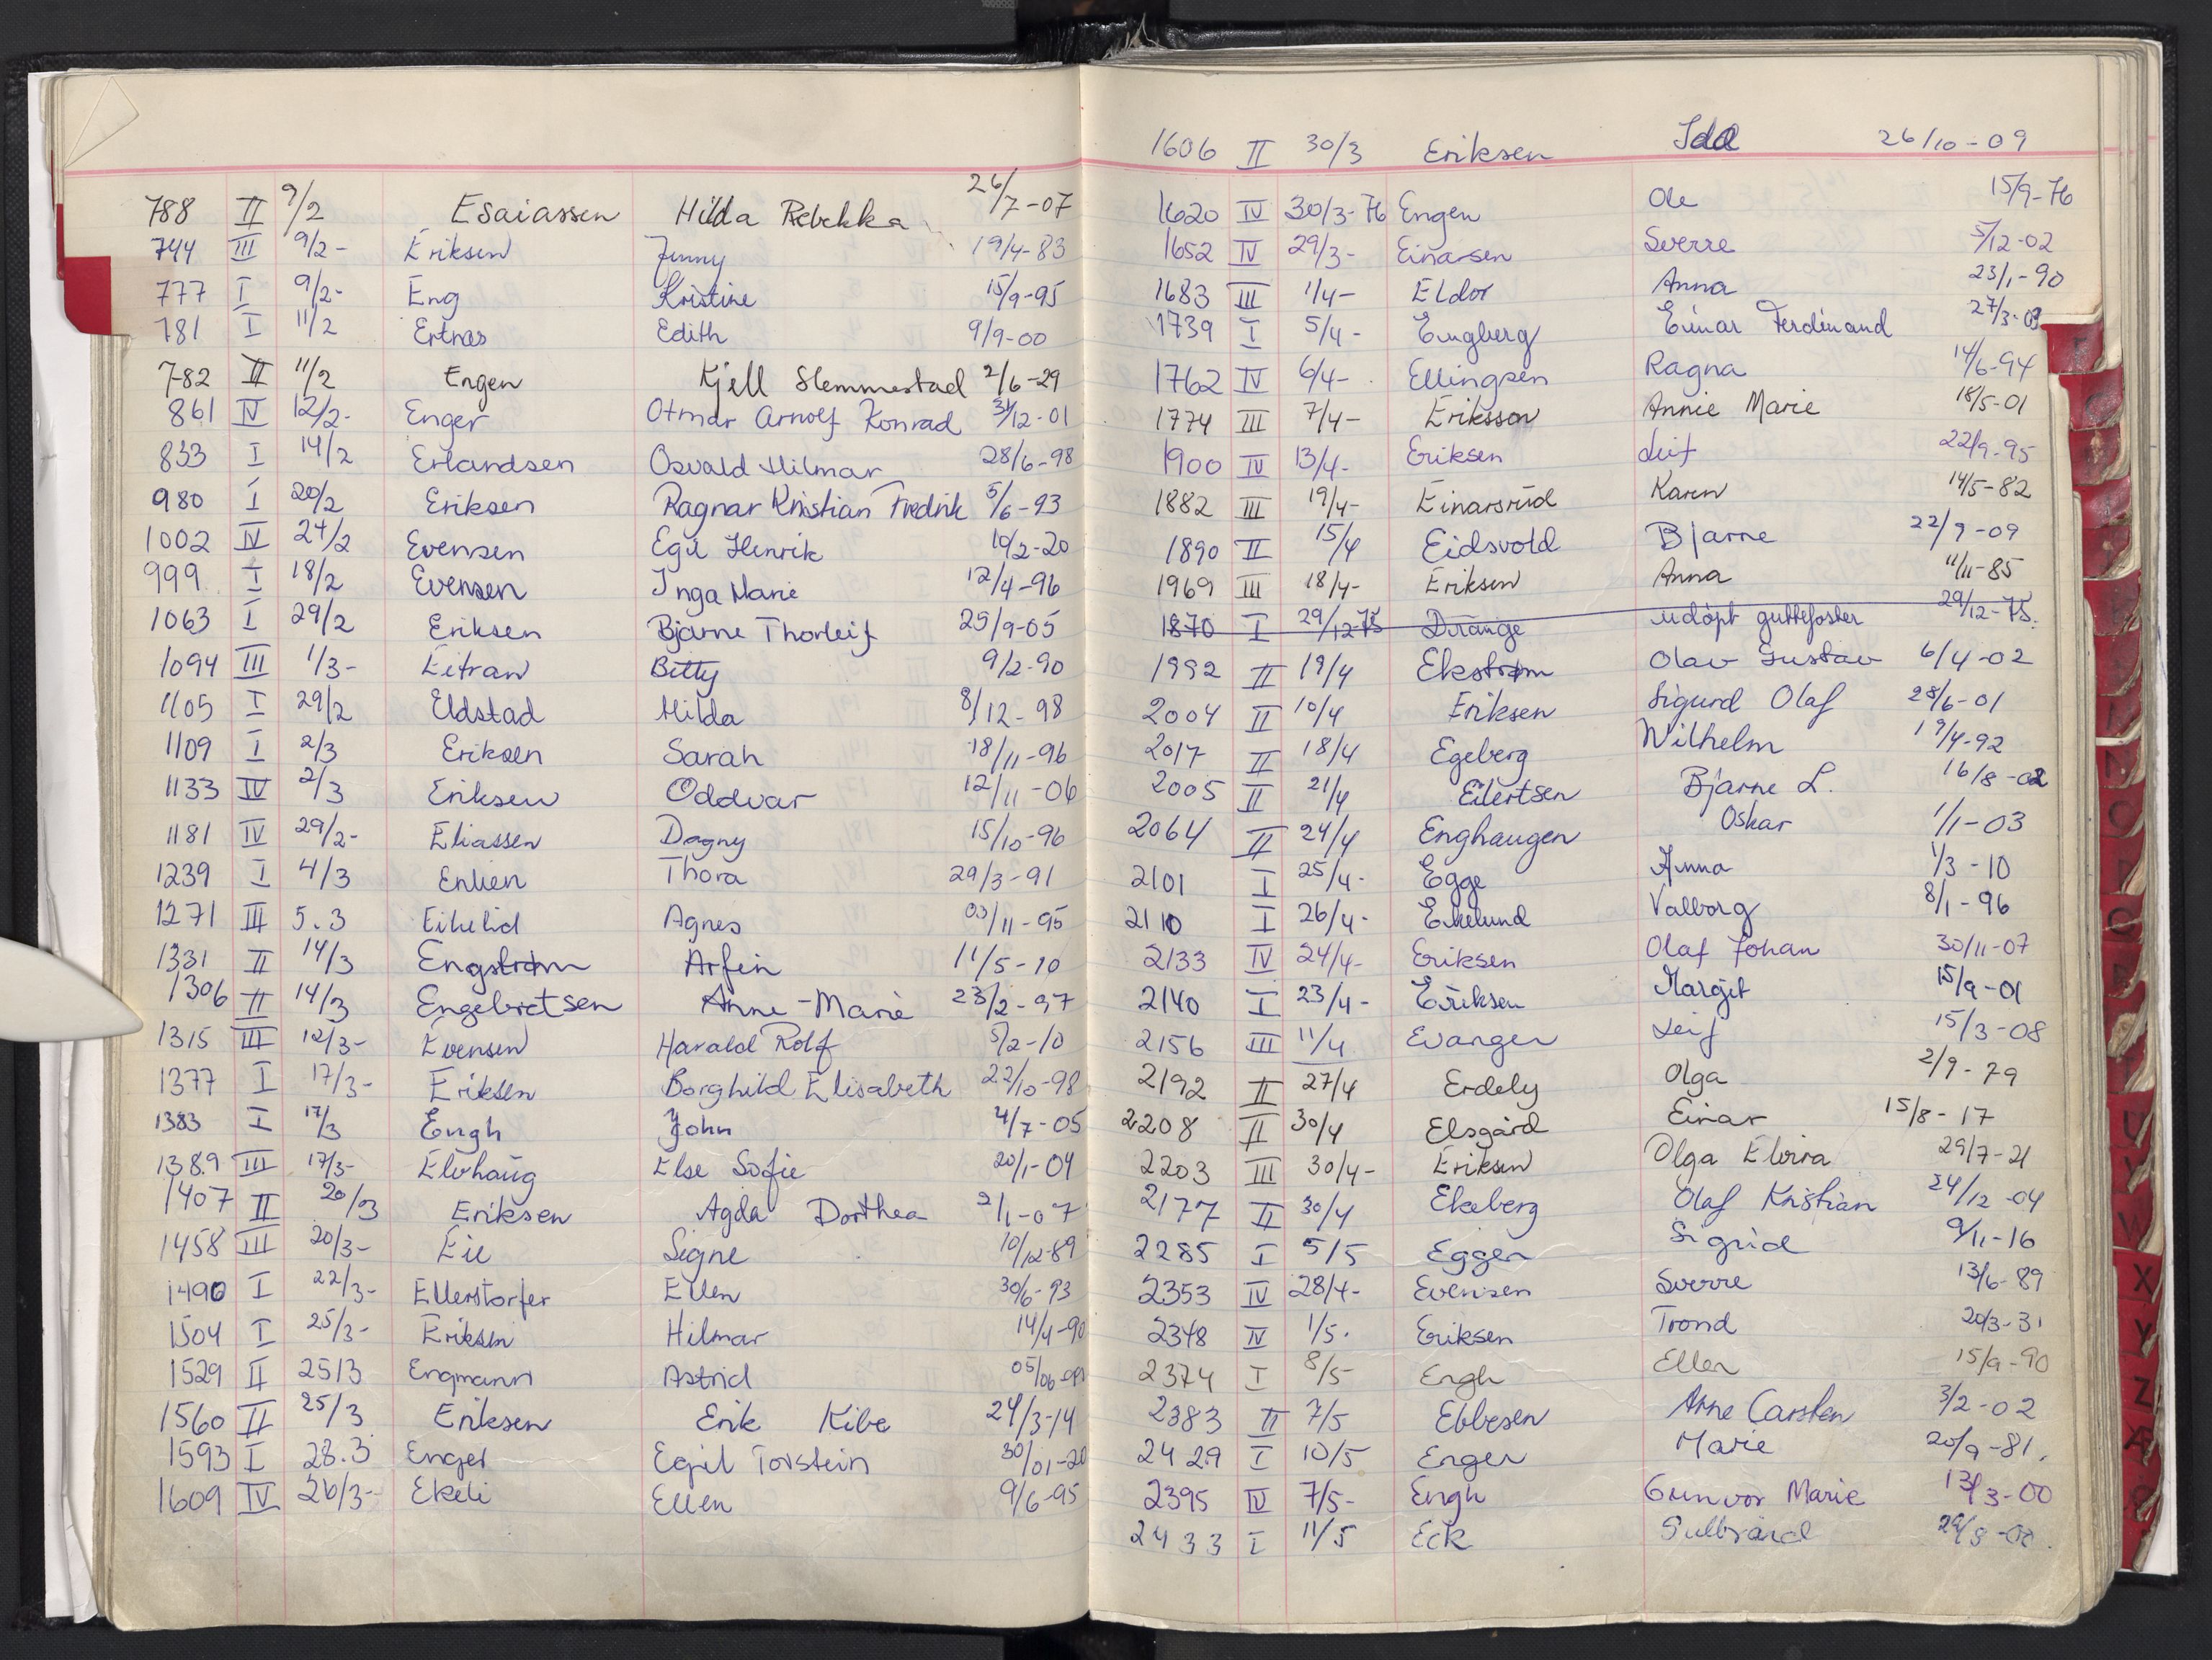 788 II 9/2 Esaiassen Hilda Rebekka 26/7-07
744 III 9/2- Eriksen Jenny 19/4-83
777 I 9/2- Eng Kristine 15/9-95
781 I 11/2 Ertnæs Edith 9/9-00
782 II 11/2 Engen Kjell Slemmestad 2/6-29
861 IV 12/2- Enger Otmar Arnolf Konrad 31/12-01
833 I 14/2 Erlandsen Osvald Hilmar 28/6-98
980 I 20/2 Eriksen Ragnar Kristian Fredrik 5/6-93
1002 IV 24/2 Evensen Egil Henrik 10/2-20
999 I 18/2 Evensen Inga Marie 12/4-96
1063 I 29/2 Eriksen Bjarne Thorleif 25/9-05
1094 III 1/3- Eitran Betty 9/2-90
1105 I 29/2 Eldstad Hilda 8/12-98
1109 I 2/3 Eriksen Sarah 18/11-96
1133 IV 2/3 Eriksen Oddvar 12/11-06
1181 IV 29/2- Eliassen Dagny 15/10-96
1239 I 4/3 Thora 29/3-91
1271 III 5.3 Eikelid Agnes 03/11-95
1331 II 14/3 Engstrøm Arfin 11/5-10
1306 II 14/3 Engebretsen Anne-Marie 23/2-97
1315 III 12/3- Evensen Harald Rolf 5/2-10
1377 I 17/3- Eriksen Borghild Elisabeth 22/10-98
1383 I 17/3 Engh John 4/7-05
1389 III 17/3- Elvhaug Else Sofie 20/1-04
1407 II 20/3 Eriksen Agda Dorthea 2/1-07
1458 III 20/3- Eie Signe 10/12-89
1490 I 22/3- Ellerstorfer Ellen 30/6-93
1504 I 25/3- Eriksen Hilmar 14/4-90
1529 II 25/3 Engmann Astrid 05/06-
1560 II 25/3 Eriksen Erik Kibe 24/3-14
1593 I 28.3 Enget Egil Torstein 30/01-20
1609 IV 26/3- Ekeli Ellen 9/6-95
1606 II 30/3 Eriksen Ida 26/10-09
1620 IV 30/3-76 Engen Ole 15/9-76
1652 IV 29/3- Einarsen Sverre 5/12-02
1683 III 1/4- Eldor Anna 23/1-90
1739 I 5/4- Engberg Einar Ferdinand 27/3-03
1762 IV 6/4- Ellingsen Ragna 14/6-94
1774 III 7/4- Eriksson Annie Marie 18/5-01
1900 IV 13/4- Eriksen Leif 22/9-95
1882 III 19/4- Einarsrud Karen 14/5-82
1890 II 15/4 Eidsvold Bjarne 22/9-09
1969 III 18/4- Eriksen Anna 11/11-85
1870 I 29/12-75 Drange udøpt guttefoster 29/12-75.
1992 II 19/4 Ekstrøm Olav Gustav 6/4-02
2004 II 10/4 Eriksen Sigurd Olaf 28/6-01
2017 II 18/4 Egeberg Wilhelm 19/4-92
2005 II 21/4 Eilertsen Bjarne L. 16/8-02
2064 II 24/4 Enghaugen Oskar 1/1-03
2101 I 25/4- Egge Anna 1/3-10
2110 I 26/4- Ekelund Valborg 8/1-96
2133 IV 24/4- Eriksen Olaf Johan 30/11-07
2140 I 23/4- Eriksen Margit 15/9-01
2156 III 11/4 Evanger Leif 15/3-08
2192 II 27/4 Erdely Olga 2/9-79
2208 II 30/4 Elsgård Einar 15/8-17
2203 III 30/4- Eriksen Olga Elvira 29/7-21
2177 II 30/4 Ekeberg Olaf Kristian 24/12-04
2285 I 5/5 Eggen Sigrid 9/11-16
2353 IV 28/4- Evensen Sverre 13/6-89
2348 IV 1/5. Eriksen Trond 20/3-31
2374 I 8/5- Engh Ellen 15/9-90
2383 II 7/5 Ebbesen Arne Carsten 3/2-02
2429 I 10/5 Enger Marie 20/9-81.
2395 IV 7/5- Engh Gunvor Marie 13/3-00
2433 I 11/5 Eck Gulbrand
X
Y
Z
Æ